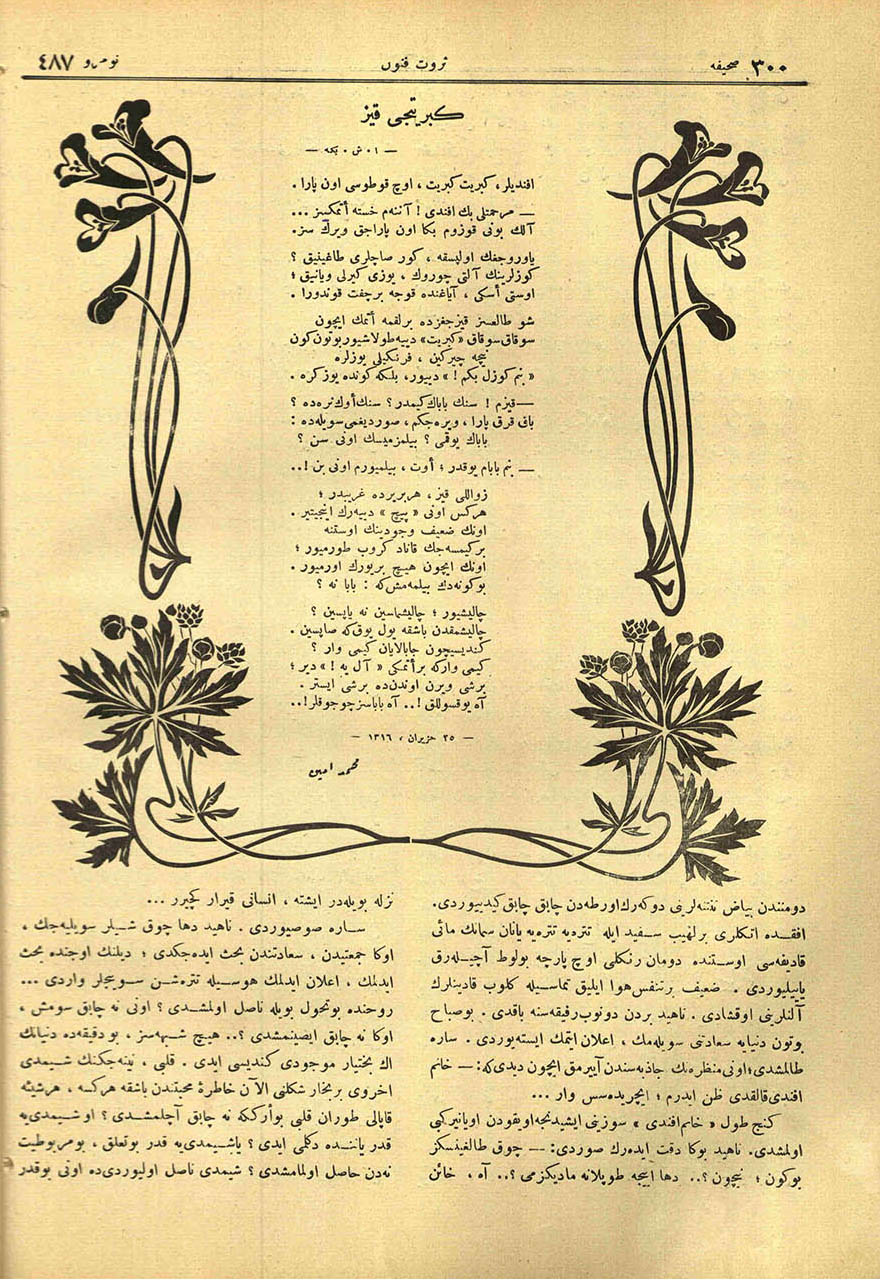 ٣٠٠ صحیفه
ثروت فنون
نومرو ٤٨٧
كبریتجی قیز
— ١٠ ش ٠ بكه —
افندیلر ، كبریت كبریت ، اوچ قوطوسی اون پارا .
— مرحمتلی بك افندی ! آننه‌م خسته أتمكسز ...
آلك بونی قوزوم بكا اون پاراجق ویرك سز.
یاوروجغك اولپسقه ، كور صاچلری طاغینیق ؟
كوزلرینك آلتی چوروك ، یوزی كیرلی ویانیق ؛
اوستی أسكی ، آیاغنده قوجه برچفت قوندورا .
شو طالعسز قیزجغزده برلقمه أتمك ایچون
سوقاق سوقاق «كبریت» دییه طولاشیور بوتون كون
نیچه چیركین ، فرنكیلی یوزلره
« بنم كوزل بكم ! » دییور، بلكه كونده یوز كره .
— قیزم ! سنك باباك كیمدر؟ سنك أوك نره‌ده ؟
باق قرق پارا ، ویره‌جكم ، صوردیغمی سویله‌ده :
باباك یوقمی ؟ بیلمزمیسك اونی سن ؟
— بنم بابام یوقدر ؛ أوت ، بیلمیورم اونی بن !..
زواللی قیز ، هربریرده غریبدر ؛
هركس اونی « پیچ » دییه‌رك اینجیتیر .
اونك ضعیف وجودینك اوستنه
بركیمسه‌جك قاناد كروب طورمیور ؛
اونك ایچون هیچ بریورك اورمیور .
بوكونه‌دك بیلمه‌مش‌كه : بابا نه ؟
چالیشیور ؛ چالیشماسین نه یاپسین ؟
چالیشمقدن باشقه یول یوق‌كه صاپسین .
كندیسیچون چابالایان كیمی وار ؟
كیمی واركه برأتمكی « آل یه ! » دیر ؛
برشی ویرن اوندن‌ده برشی ایستر .
آه یوقسوللق !.. آه باباسز چوجوقلر!..
— ٢٥ حزیران ، ١٣١٦ —
محمد امین
دومنندن بیاض تنتنه‌لرینی دوكه‌رك اورطه‌دن چابق چابق كیدییوردی.
افقده اتكلری برلهیب سفید ایله تتره‌یه تتره‌یه یانان سمانك مائی
قادیفه‌سی اوستنده دومان رنكلی اوچ پارچه بولوط آچیله‌رق
یاییلیوردی . ضعیف برتنفس هوا ایلیق تماسیله كلوب قادینلرك
آلنلرینی اوقشادی . ناهید بردن دونوب رفیقه‌سنه باقدی . بوصباح
بوتون دنیایه سعادتنی سویله‌مك ، اعلان ایتمك ایسته‌یوردی . ساره
طالمشدی؛ اونی منظره‌نك جاذبه‌سندن آییرمق ایچون دیدی‌كه: — خانم
افندی قالقدی ظن ایدرم ؛ ایچریده‌سس وار ...
كنج طول « خانم افندی » سوزینی ایشیدنجه اویقودن اویانیركبی
اولمشدی. ناهید بوكا دقت ایده‌رك صوردی: — چوق طالغینسكز
بوكون ؛ نیچون ؟.. دها اییجه طوپلانه مادیكزمی ؟.. آه ، خائن
نزله بویله‌در ایشته ، انسانی قیرار كچیرر ...
ساره صوصیوردی . ناهید دها چوق شیلر سویلیه‌جك ،
اوكا جمعتیدن ، سعادتندن بحث ایده‌جكدی ؛ دیلنك اوجنده بحث
ایدلمك ، اعلان ایدلمك هوسیله تتره‌شن سوینجلر واردی ...
روحنده بوتحول بویله ناصل اولمشدی ؟ اونی نه چابق سومش ،
اوكا نه چابق ایصینمشدی ؟.. هیچ شبهه‌سز ، بو دقیقه‌ده دنیانك
اك بختیار موجودی كندیسی ایدی . قلبی ، نینه‌جكنك شیمدی
اخروی بربخار شكلنی آلان خاطرهٔ محبتندن باشقه هركسه ، هرشیئه
قاپالی طوران قلبی بوأرككه نه چابق آچلمشدی ؟ او شیمدی‌یه
قدر یاننده دكلمی ایدی ؟ یاشیمدی‌یه قدر بوتعلق ، بومربوطیت
نه‌دن حاصل اولمامشدی ؟ شیمدی ناصل اولیوردی‌ده اونی بوقدر